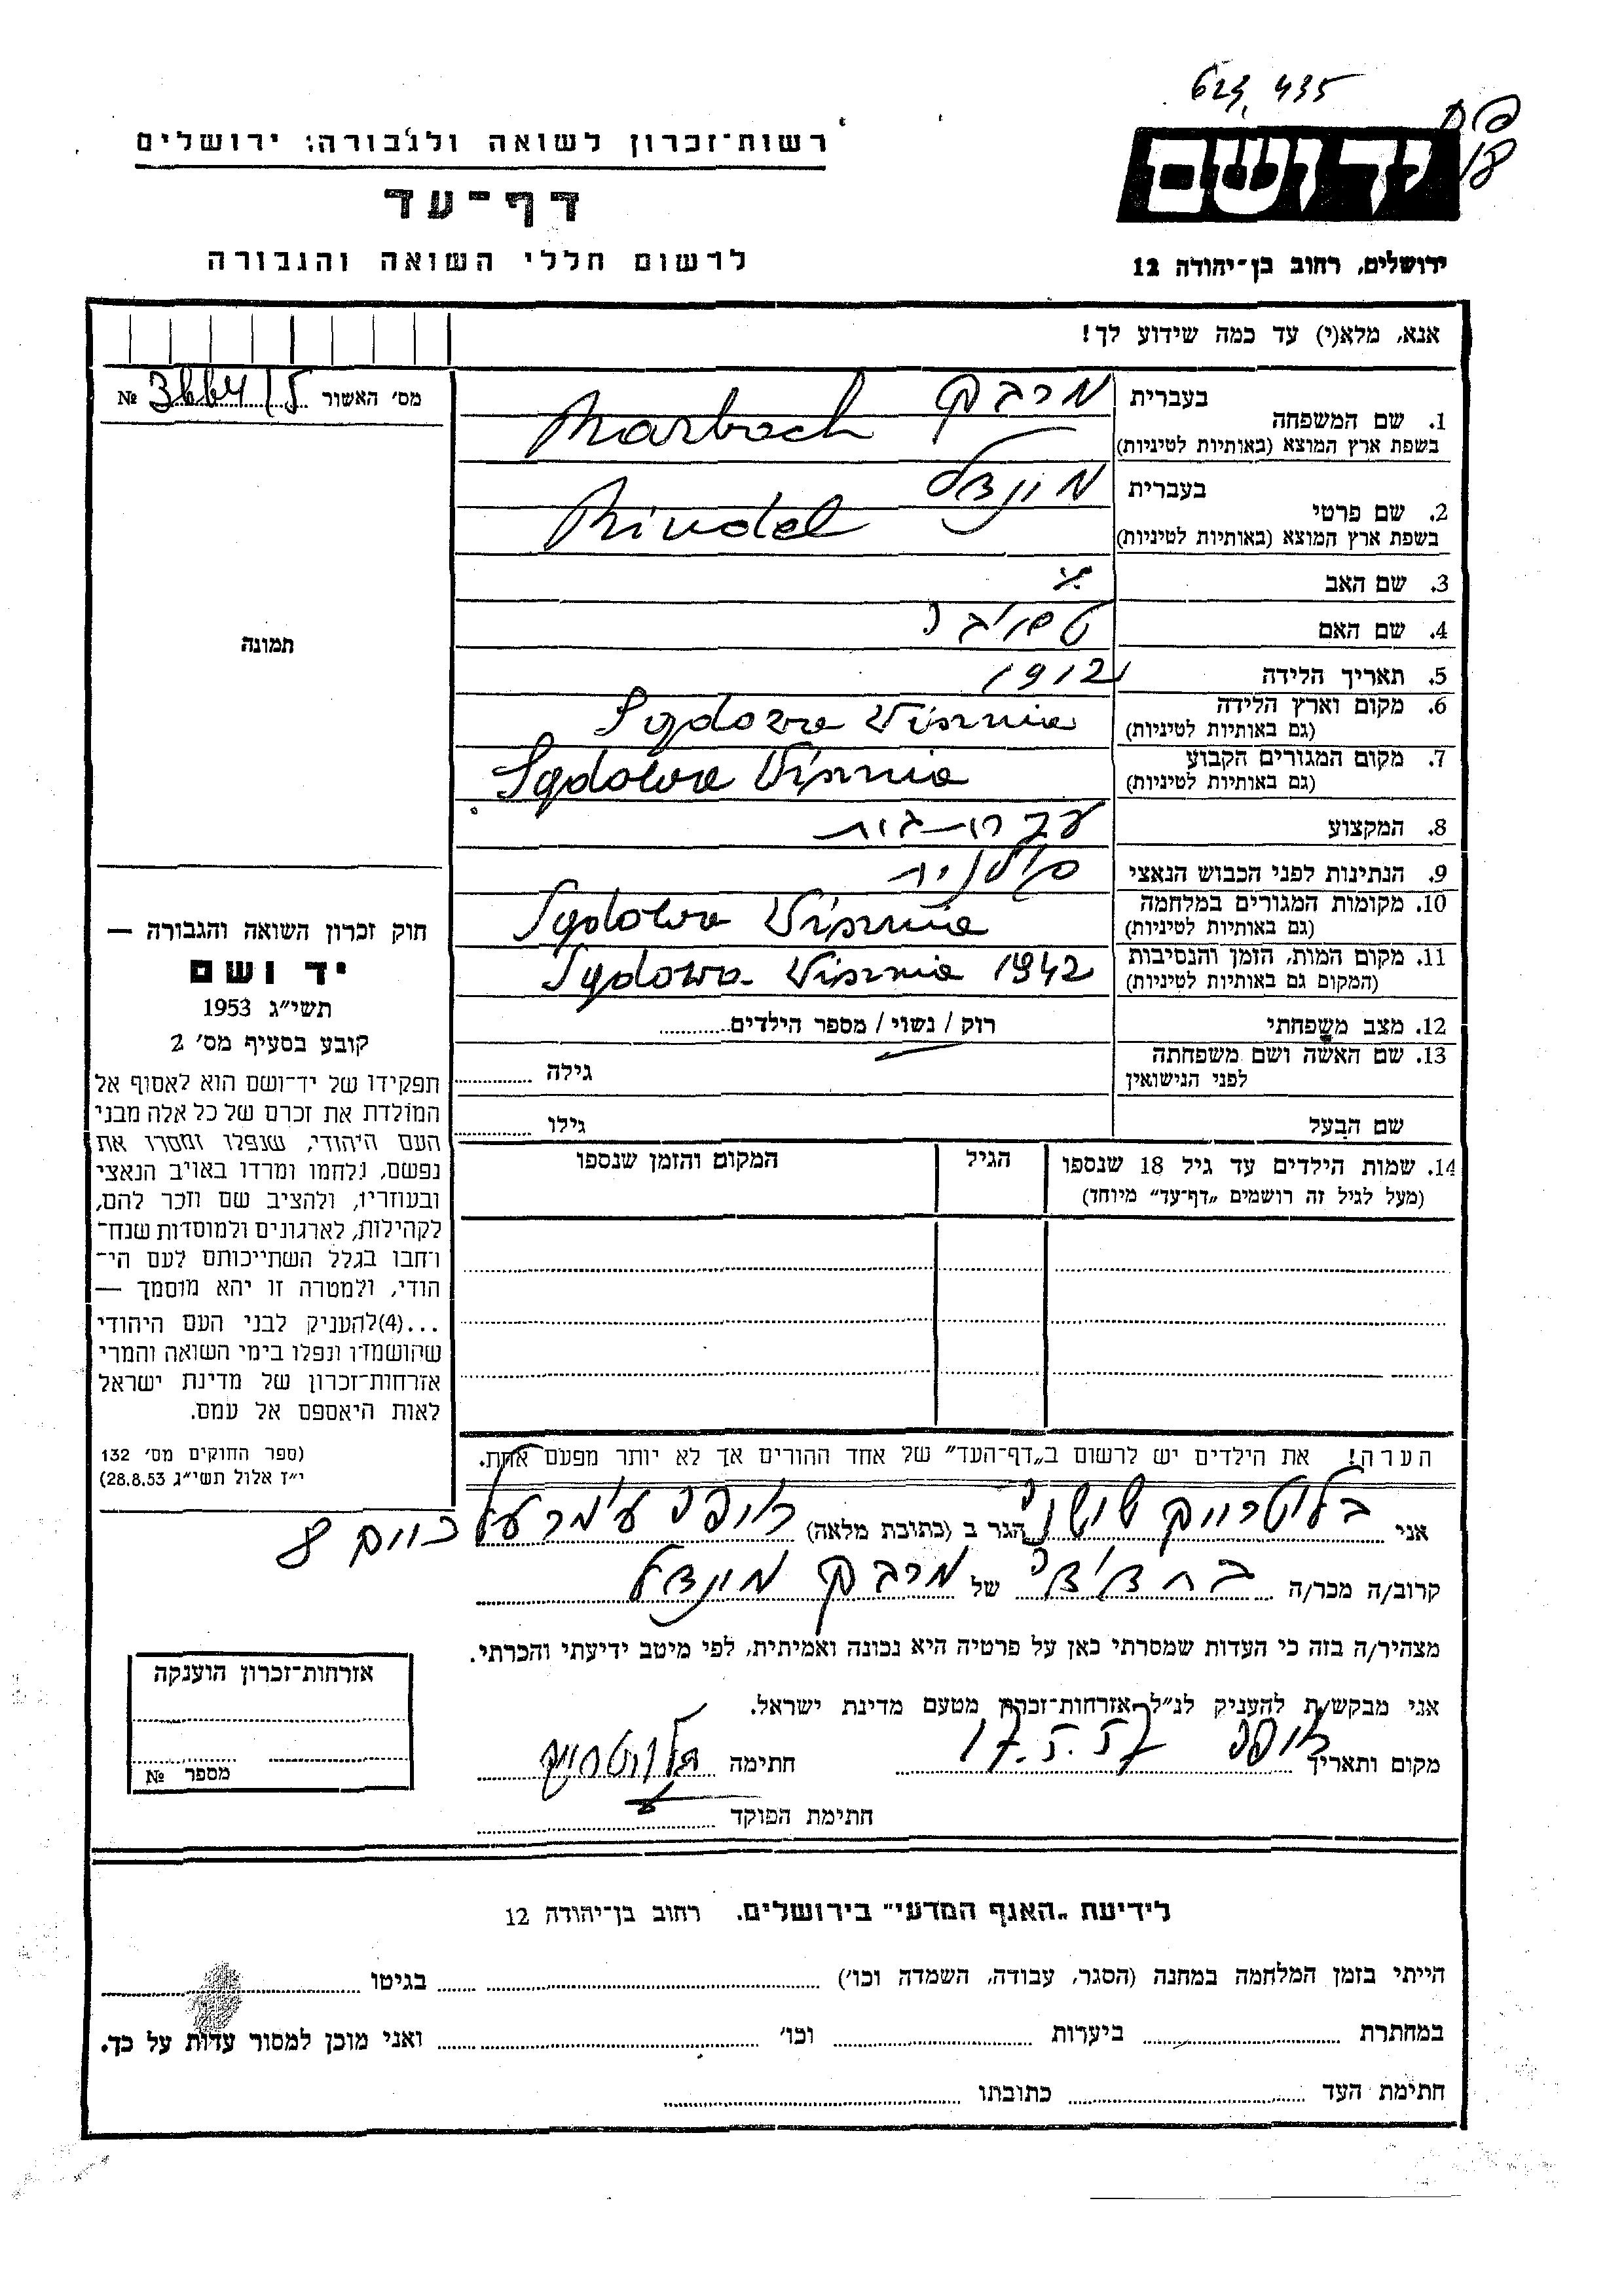 623,435
רשות־זכרון לשואה ולגבורה; ירושלים
דף־עד
לרשום חללי השואה והגבורה
יד ושם
ירושלים, רחוב בן־יהודה 12
אנא, מלא(י) עד כמה שידוע לך!
מס׳ האשור №
1. שם המשפחה
בעברית מרבך
בשפת ארץ המוצא (באותיות לטיניות) Marbach
2. שם פרטי
בעברית מינדל
בשפת ארץ המוצא (באותיות לטיניות) Mindel
3. שם האב
4. שם האם
5. תאריך הלידה 1912
6. מקום וארץ הלידה Sądowa Visznia
(גם באותיות לטיניות)
7. מקום המגורים הקבוע Sądowa Visznia
(גם באותיות לטיניות)
8. המקצוע עקרת־בית
9. הנתינות לפני הכבוש הנאצי פולנית
10. מקומות המגורים במלחמה Sądowa Visznia
(גם באותיות לטיניות)
11. מקום המות, הזמן והנסיבות Sądowa Visznia 1942
(המקום גם באותיות לטיניות)
12. מצב משפחתי רוק / נשוי / מספר הילדים
13. שם האשה ושם משפחתה
לפני הנישואין גילה
שם הבעל גילו
14. שמות הילדים עד גיל 18 שנספו הגיל המקום והזמן שנספו
(מעל לגיל זה רושמים „דף־עד״ מיוחד)
הערה! את הילדים יש לרשום ב„דף־העד״ של אחד ההורים אך לא יותר מפעם אחת.
תמונה
חוק זכרון השואה והגבורה —
יד ושם
תשי״ג 1953
קובע בסעיף מס׳ 2
תפקידו של יד־ושם הוא לאסוף אל
המולדת את זכרם של כל אלה מבני
העם היהודי, שנפלו ומסרו את
נפשם, נלחמו ומרדו באויב הנאצי
ובעוזריו, ולהציב שם וזכר להם,
לקהילות, לארגונים ולמוסדות שנח־
רחבו בגלל השתייכותם לעם הי־
הודי, ולמטרה זו יהא מוסמך —
...(4)להעניק לבני העם היהודי
שהושמדו ונפלו בימי השואה והמרי
אזרחות־זכרון של מדינת ישראל
לאות היאספם אל עמם.
(ספר החוקים מס׳ 132
י״ז אלול תשי״ג 28.8.53)
אני הגר ב (כתובת מלאה) חיפה
קרוב/ה מכר/ה של מרבך מינדל
מצהיר/ה בזה כי העדות שמסרתי כאן על פרטיה היא נכונה ואמיתית, לפי מיטב ידיעתי והכרתי.
אני מבקש/ת להעניק לנ״ל אזרחות־זכרון מטעם מדינת ישראל.
מקום ותאריך חיפה 17.5.57 חתימה
חתימת הפוקד
אזרחות־זכרון הוענקה
מספר №
לידיעת „האגף המדעי״ בירושלים. רחוב בן־יהודה 12
הייתי בזמן המלחמה במחנה (הסגר, עבודה, השמדה וכו׳) בגיטו
במחתרת ביערות וכו׳ ואני מוכן למסור עדות על כך.
חתימת העד כתובתו